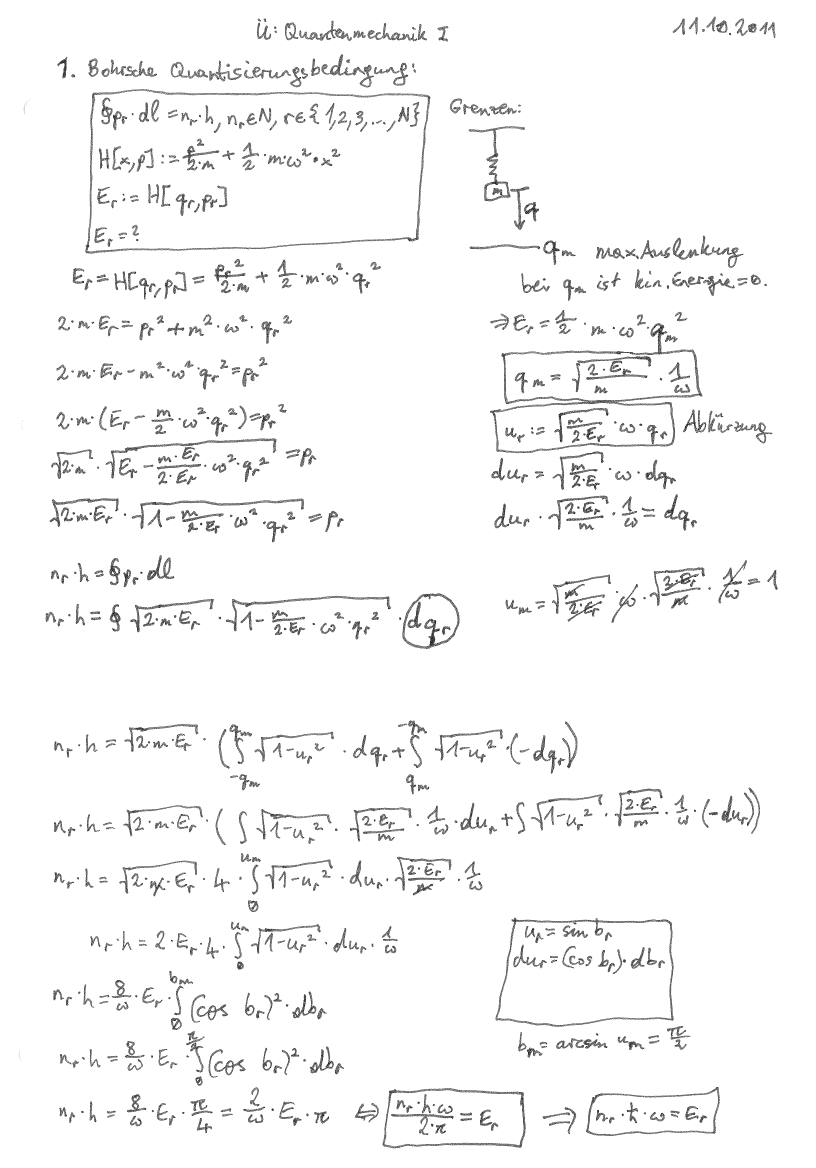 Ü: Quantenmechanik I 11.10.2011
1. Bohrsche Quantisierungsbedingung:
∮pᵣ·dl = nᵣ·h, nᵣ∈N, r∈{1,2,3,...,N}
H[x,p] := p²/(2·m) + 1/2·m·ω²·x²
Eᵣ := H[qᵣ,pᵣ]
Eᵣ = ?
Grenzen:
m
q
qₘ max. Auslenkung
bei qₘ ist kin. Energie = 0.
⇒ Eᵣ = 1/2·m·ω²·qₘ²
qₘ = √(2·Eᵣ/m)·1/ω
uᵣ := √(m/(2·Eᵣ))·ω·qᵣ Abkürzung
duᵣ = √(m/(2·Eᵣ))·ω·dqᵣ
duᵣ·√(2·Eᵣ/m)·1/ω = dqᵣ
uₘ = √(m/(2·Eᵣ))·ω·√(2·Eᵣ/m)·1/ω = 1
Eᵣ = H[qᵣ,pᵣ] = pᵣ²/(2·m) + 1/2·m·ω²·qᵣ²
2·m·Eᵣ = pᵣ² + m²·ω²·qᵣ²
2·m·Eᵣ - m²·ω²·qᵣ² = pᵣ²
2·m·(Eᵣ - m/2·ω²·qᵣ²) = pᵣ²
√(2·m)·√(Eᵣ - (m·Eᵣ)/(2·Eᵣ)·ω²·qᵣ²) = pᵣ
√(2·m·Eᵣ)·√(1 - m/(2·Eᵣ)·ω²·qᵣ²) = pᵣ
nᵣ·h = ∮pᵣ·dl
nᵣ·h = ∮√(2·m·Eᵣ)·√(1 - m/(2·Eᵣ)·ω²·qᵣ²)·dqᵣ
nᵣ·h = √(2·m·Eᵣ)·(∫_{-qₘ}^{qₘ} √(1-uᵣ²)·dqᵣ + ∫_{qₘ}^{-qₘ} √(1-uᵣ²)·(-dqᵣ))
nᵣ·h = √(2·m·Eᵣ)·(∫√(1-uᵣ²)·√(2·Eᵣ/m)·1/ω·duᵣ + ∫√(1-uᵣ²)·√(2·Eᵣ/m)·1/ω·(-duᵣ))
nᵣ·h = √(2·m·Eᵣ)·4·∫_0^{uₘ} √(1-uᵣ²)·duᵣ·√(2·Eᵣ/m)·1/ω
nᵣ·h = 2·Eᵣ·4·∫_0^{uₘ} √(1-uᵣ²)·duᵣ·1/ω
nᵣ·h = 8/ω·Eᵣ·∫_0^{bₘ} (cos bᵣ)²·dbᵣ
nᵣ·h = 8/ω·Eᵣ·∫_0^{π/2} (cos bᵣ)²·dbᵣ
uᵣ = sin bᵣ
duᵣ = (cos bᵣ)·dbᵣ
bₘ = arcsin uₘ = π/2
nᵣ·h = 8/ω·Eᵣ·π/4 = 2/ω·Eᵣ·π ⇔ (nᵣ·h·ω)/(2·π) = Eᵣ ⇒ nᵣ·ħ·ω = Eᵣ